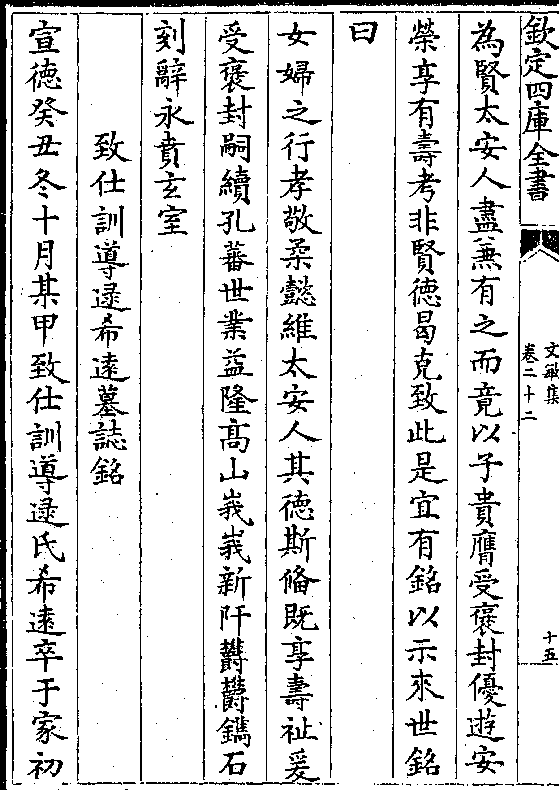 欽定四庫全書
文敏集
卷二十二
十五
為賢太安人盡兼有之而竟以子貴膺受褒封優遊安
榮享有壽考非賢徳曷克致此是宜有銘以示來世銘
曰
女婦之行孝敬柔懿維太安人其徳斯備既享壽祉爰
受褒封嗣續孔蕃世業益隆髙山峩峩新阡欝欝鐫石
刻辭永賁玄室
致仕訓導逯希逺墓誌銘
宣徳癸丑冬十月某甲致仕訓導逯氏希逺卒于家初